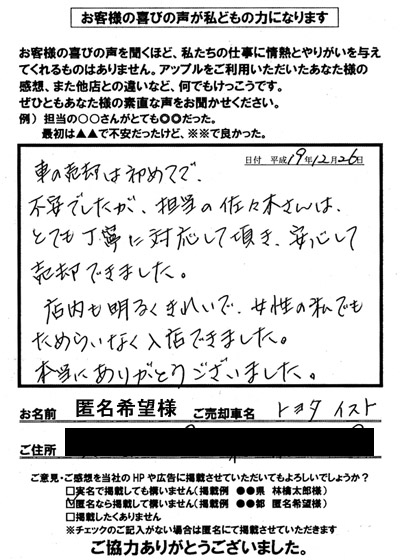 お客様の喜びの声が私どもの力になります
お客様の喜びの声を聞くほど、私たちの仕事に情熱とやりがいを与え
てくれるものはありません。アップルをご利用いただいたあなた様の
感想、また他店との違いなど、何でもけっこうです。
ぜひともあなた様の素直な声をお聞かせください。
例）担当の○○さんがとても◎◎だった。
最初は▲▲で不安だったけど、※※で良かった。
日付 平成19年12月26日
車の売却は初めてで、
不安でしたが、担当の佐々木さんは、
とても丁寧に対応して頂き、安心して
売却できました。
店内も明るくきれいで、女性の私でも
ためらいなく入店できました。
本当にありがとうございました。
お名前 匿名希望様 ご売却車名 トヨタ イスト
ご住所
ご意見・ご感想を当社のHPや広告に掲載させていただいてもよろしいでしょうか？
□実名で掲載しても構いません(掲載例 ●●県 林檎太郎様)
☑匿名なら掲載して構いません(掲載例 ●●都 匿名希望様)
□掲載したくありません
※チェックのご記入がない場合は匿名にて掲載させていただきます
ご協力ありがとうございました。